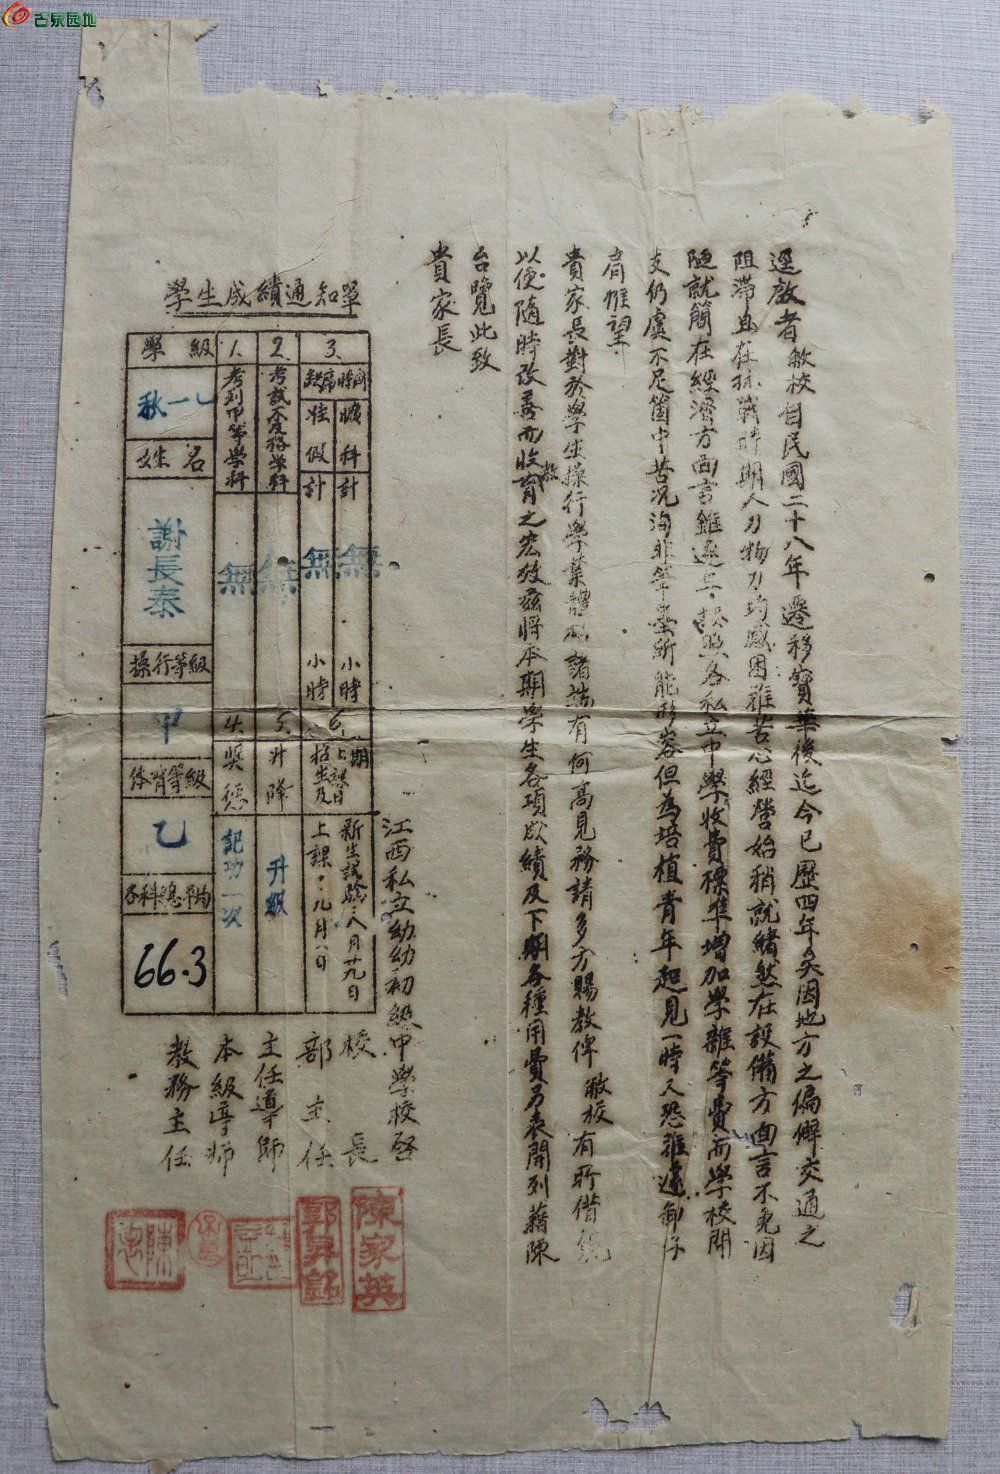 古泉园地
逕啟者敝校自民國二十八年遷移寶華後迄今已歷四年矣因地方之偏僻交通之
阻滯且在抗戰時期人力物力均感困難苦心經營始稍就緒然在設備方面言不免因
陋就簡在經濟方面言雖逐年按照各私立中學收費標準增加學雜等費而學校開
支仍虞不足箇中苦況洵非筆墨所能形容但為培植青年起見一時又恐難遽卸仔
肩惟望
貴家長對於學生操行學業體格諸端有何高見務請多方賜教俾敝校有所借鏡
以便隨時改善而收教育之宏效茲將本期學生各項成績及下期各種用費另表開列藉陳
台覽此致
貴家長
江西私立幼幼初級中學校啓
學生成績通知單
學級
秋一乙
姓名
謝長泰
操行等級
甲
体育等級
乙
各科總平均
66.3
1.
考列甲等學科
無
2.
考試不及格學科
無
3.
缺席時間
曠科計
無
小時
准假計
無
小時
4.獎懲
記功一次
5.升降
升級
6.
招生及上課日期
新生試驗:八月廿九日
上課:九月八日
校長
陳家英
部主任
郭昇銘
主任導師
本級導師
教務主任